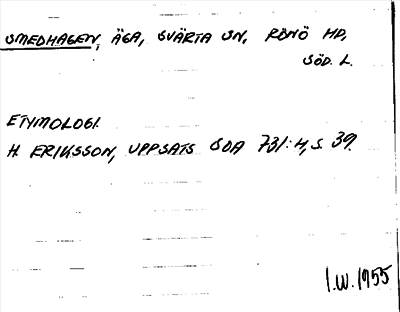 SMEDHAGEN, ÄGA, SVÄRTA SN, RÖNÖ HD,
SÖD. L.
ETYMOLOGI.
H. ERIKSSON, UPPSATS SOA 731:4, S. 39.
I.W. 1955